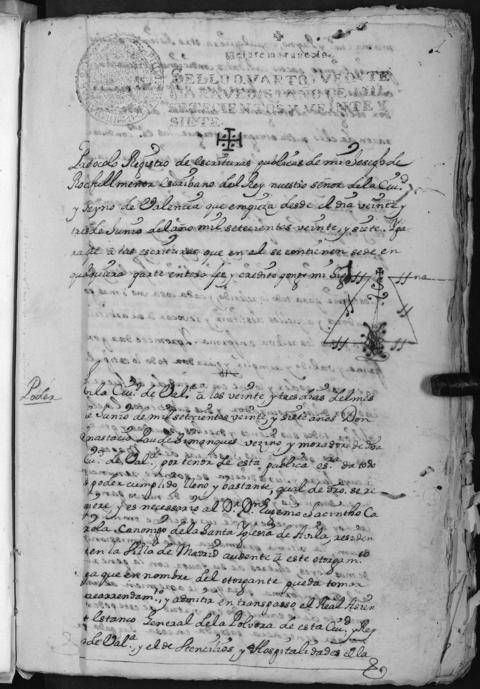 SELLO QVARTO, VEINTE
MARAVEDIS, AÑO DE MIL
SETECIENTOS Y VEINTE Y
SIETE.
Protocolo Registro de escrituras publicas de mi Joseph de
Rochell menor Escribano del Rey nuestro señor de la Ciu.d
y Reyno de Valencia que empieza desde el dia veinte y
tres de Junio del año mil setecientos veinte, y siete. Y pa
ra q.e a las escrituras que en el se contienen se de en
qualquiera parte entera fee, y credito pongo mi Sig no
Poder
En la Ciu.d de Val.a a los veinte y tres dias del mes
de Junio de mil setecientos veinte, y siete años Don
Anastacio vezino y morador de
Ciu.d de Val.a por tenor de esta publica es.ra da todo
su poder cumplido lleno y bastante, qual de dro. se re
quiere, y es necessario al D.r D.n Eugenio Jacintho Ca
rola Canonigo de la Santa Iglesia de Avila, residen
te en la Villa de Madrid ausente a este otorgam.to
para que en nombre del otorgante pueda tomar
en arrendam.to, y admitir en transpasso el Real Assien
to Estanco General de la Polvora de esta Ciu.d y Rey
no de Val.a, y el de Utencilios, y Hospitalidades de la